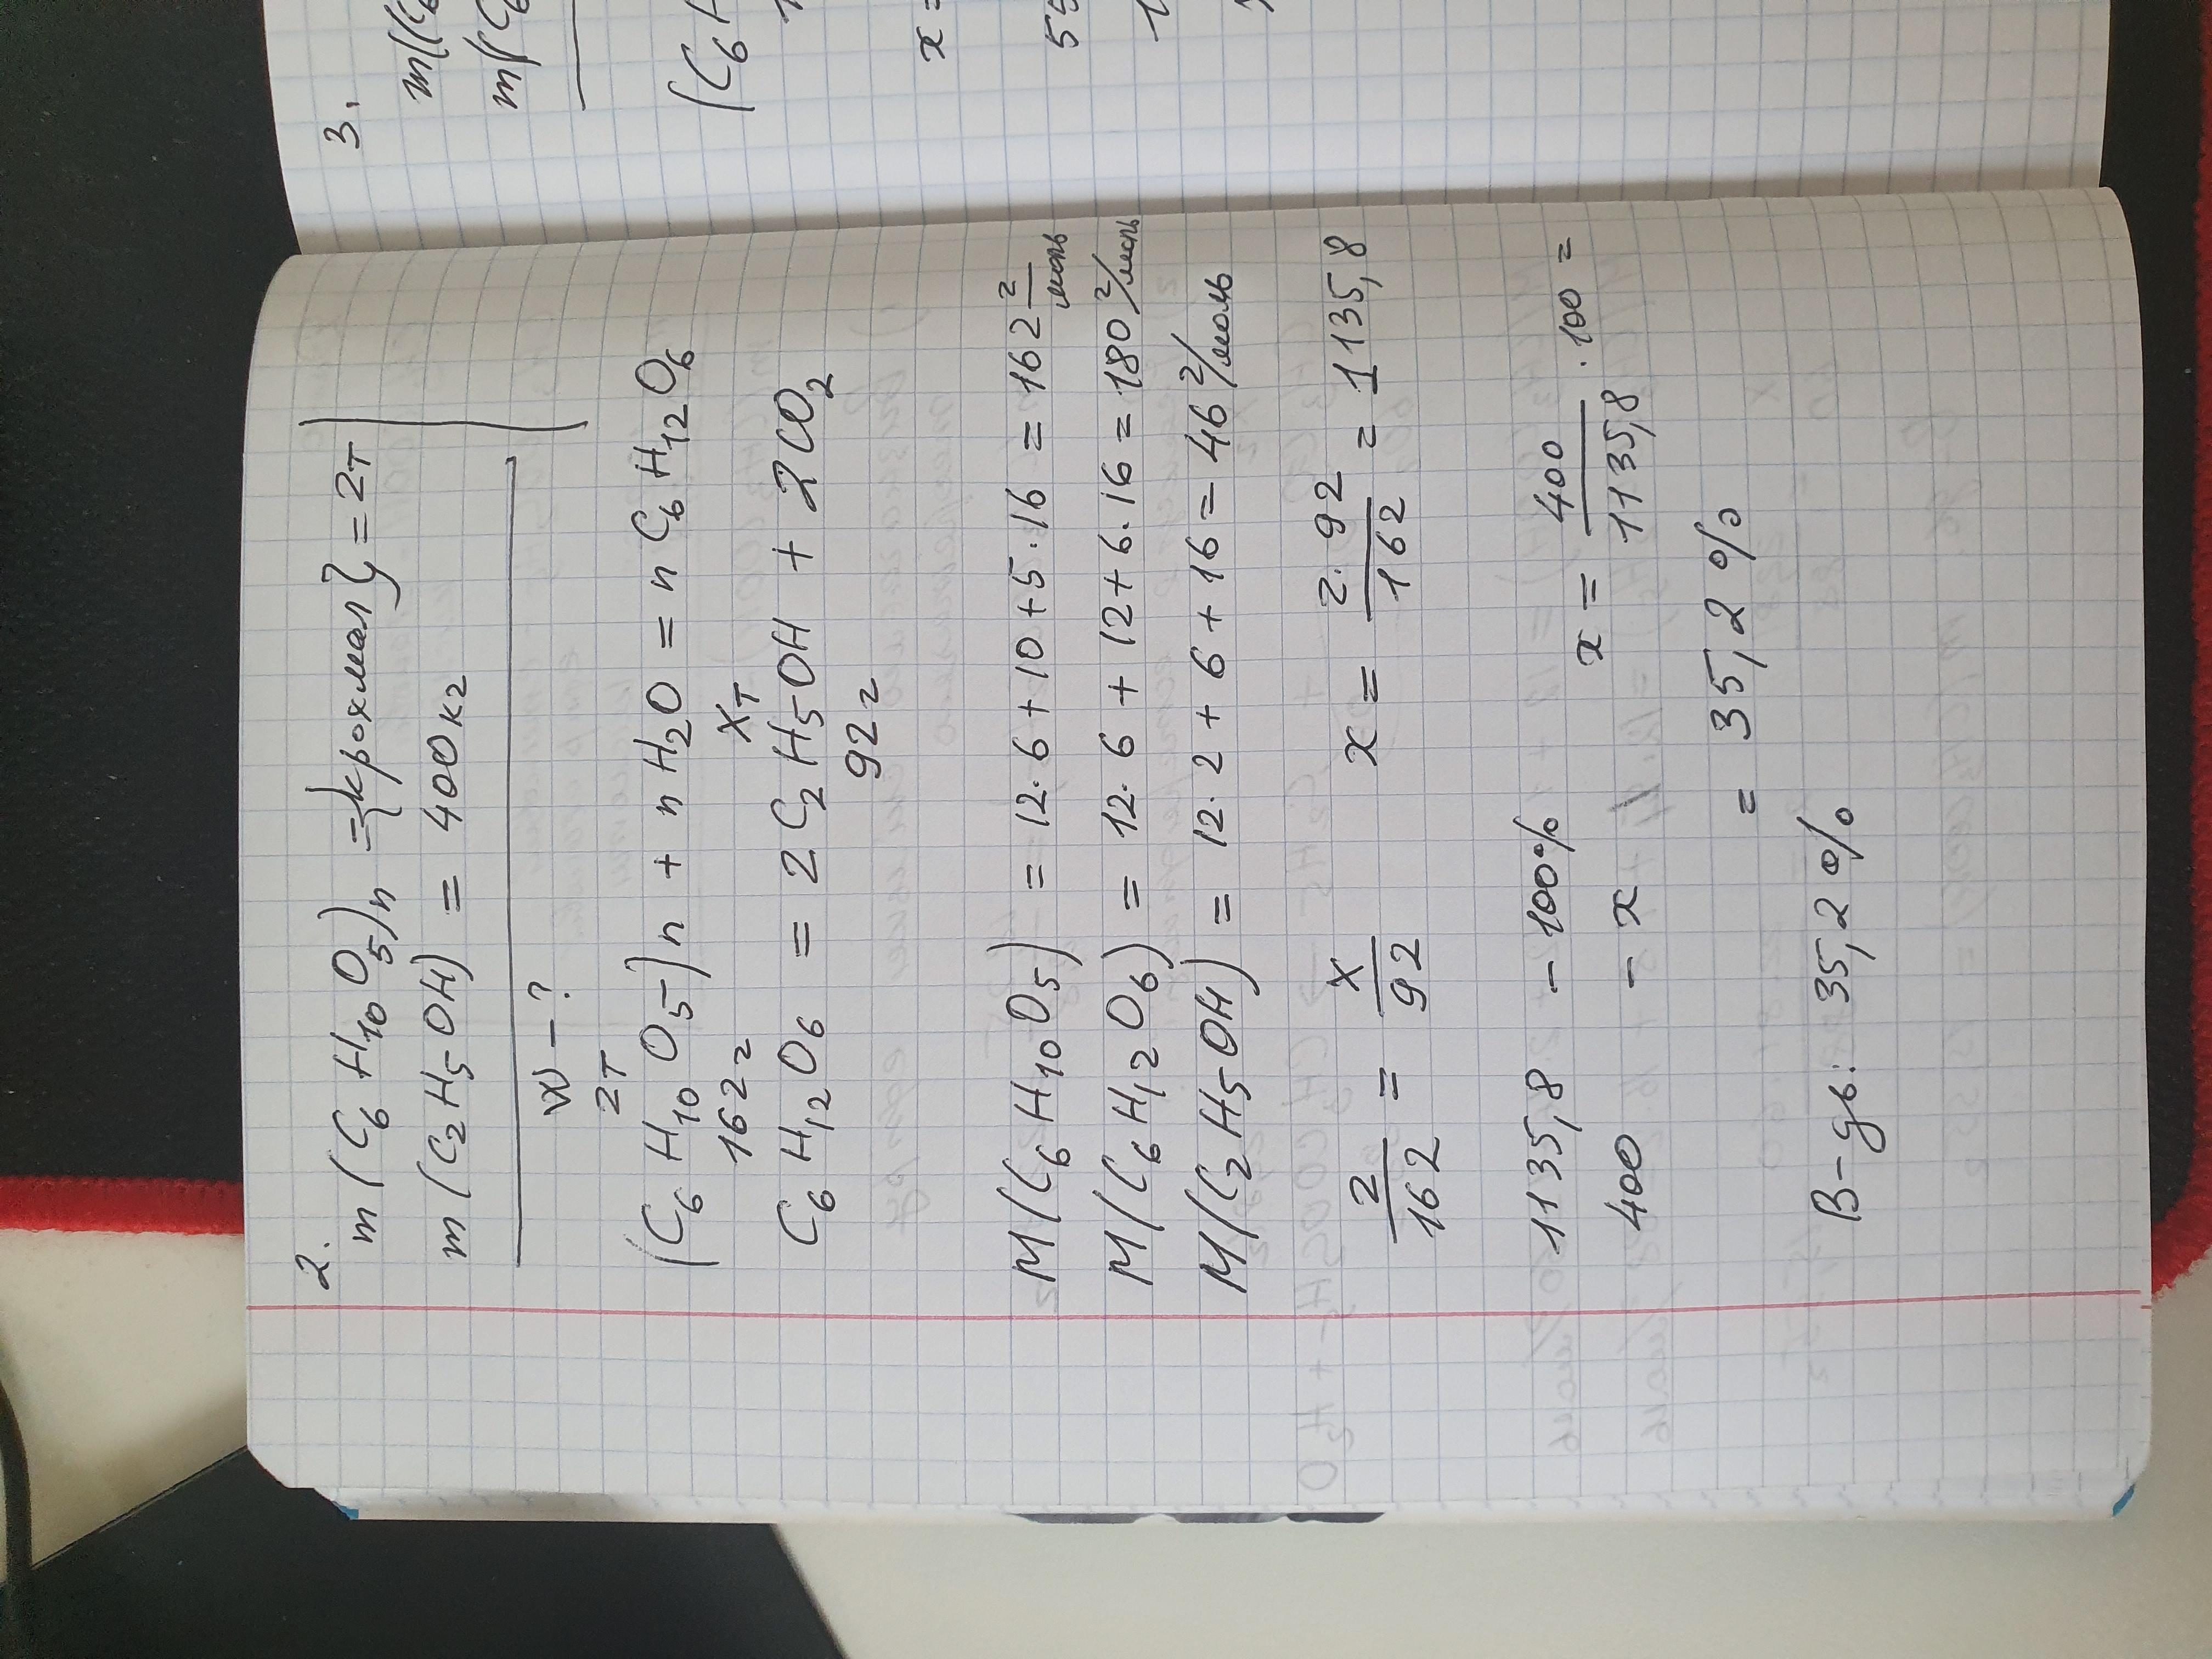 2.
m(C6H10O5)n = {крохмал} = 2т
m(C2H5OH) = 400кг
W - ?
2т
(C6H10O5)n + nH2O = nC6H12O6
162г
xт
C6H12O6 = 2C2H5OH + 2CO2
92г
M(C6H10O5) = 12·6+10+5·16 = 162 г/моль
M(C6H12O6) = 12·6+12+6·16 = 180 г/моль
M(C2H5OH) = 12·2+6+16 = 46 г/моль
2/162 = x/92 x = 2·92/162 = 1135,8
1135,8 - 100% x = 400/1135,8 · 100 =
400 - x
= 35,2%
В-дь: 35,2%
3.
m((C6
m((C
(C6H
x =
55